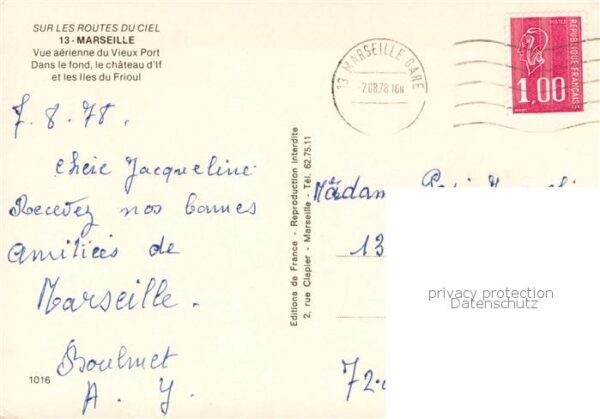 SUR LES ROUTES DU CIEL
13 - MARSEILLE
Vue aérienne du Vieux Port
Dans le fond, le château d'If
et les Iles du Frioul
7.8.78.
Chère Jacqueline
Recevez nos bonnes
Amitiés de
Marseille.
A. Y.
1016
Editions de France - Reproduction interdite
2, rue Clapier - Marseille - Tél. 62.75.11
13 MARSEILLE GARE
-7.08.78 16H
POSTES
REPUBLIQUE FRANÇAISE
1,00
Madam
13
72
privacy protection
Datenschutz